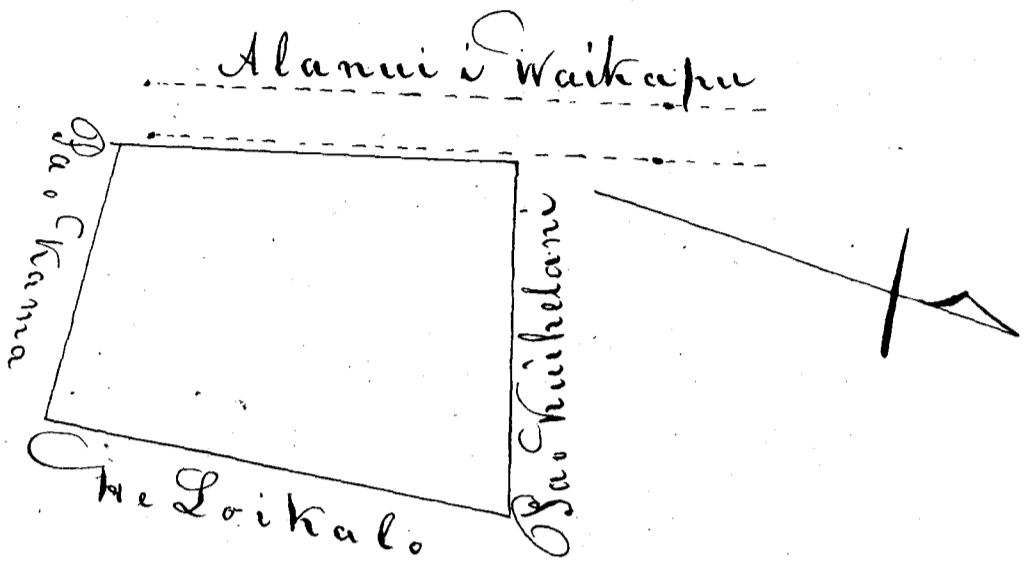 Alanui i Waikapu
Pa o Kaura
Pa o Kuihelani
He Loi Kalo